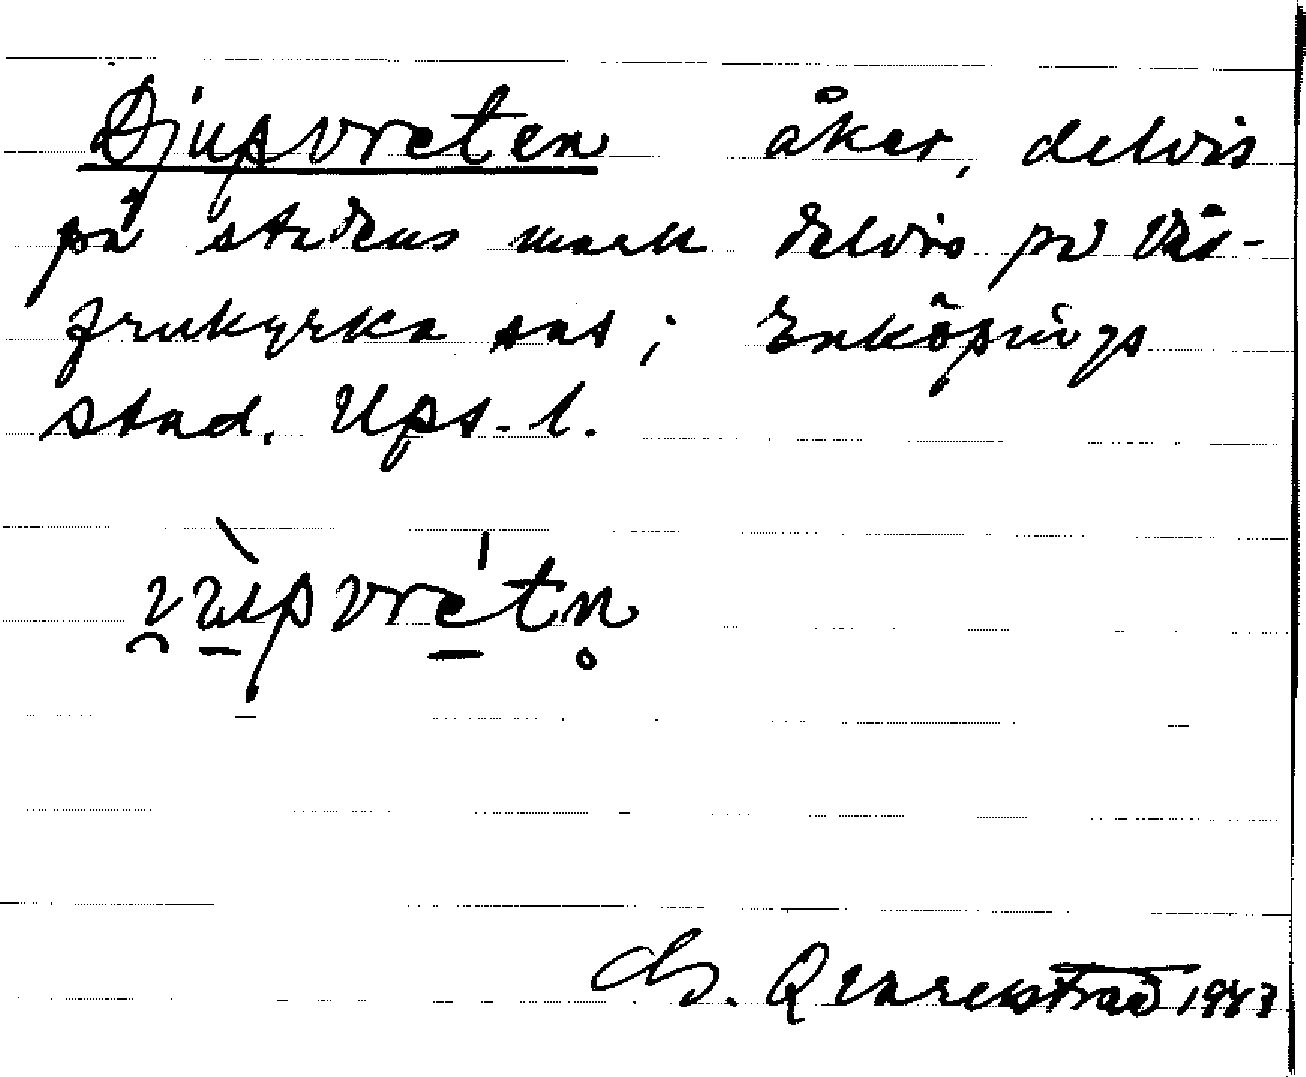 Djupvreten åker, delvis
på stadens mark delvis på Vår-
frukyrka sns; Enköpings
stad. Ups. l.
i̯ùpvrétn̥
Qvarnstrad 1943